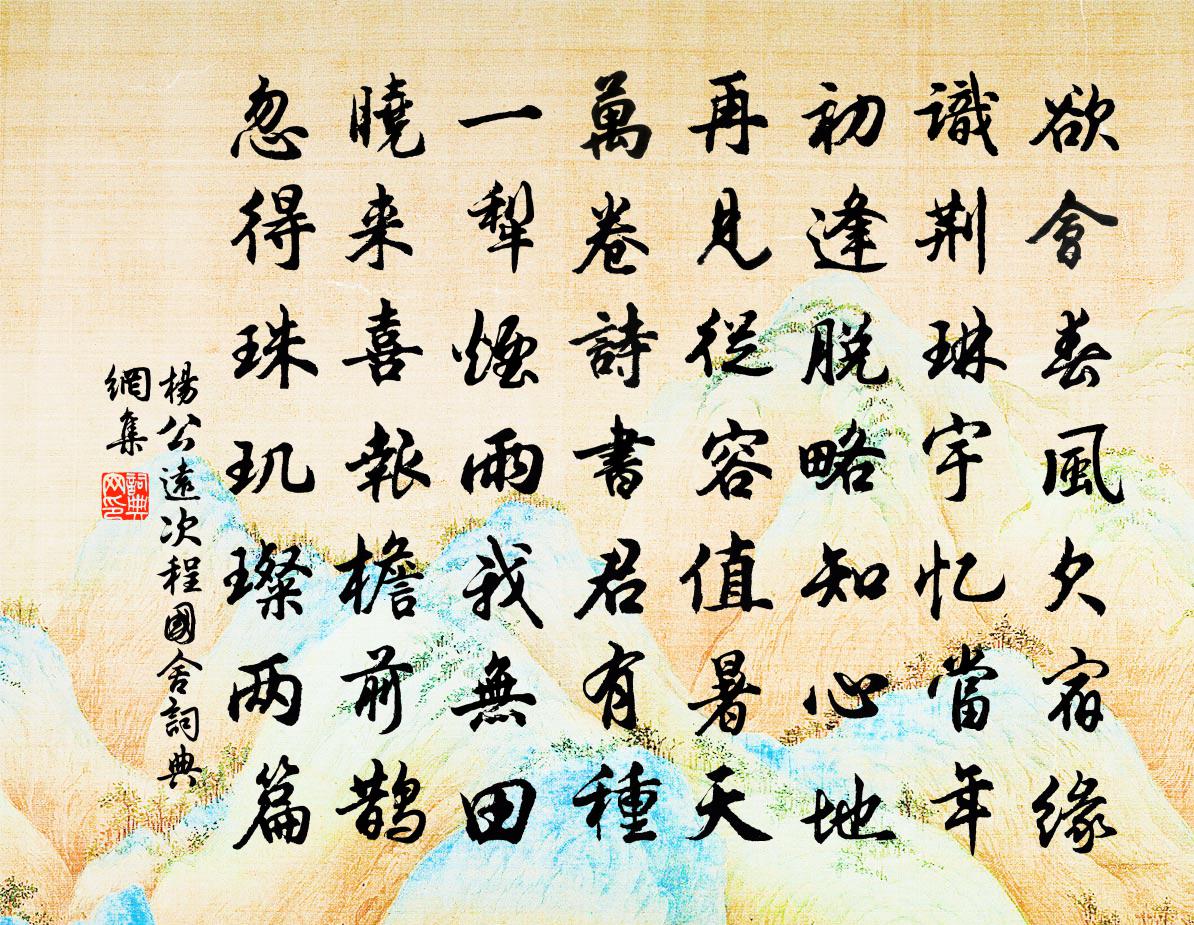 欲會春風欠宿緣
識荆琳宇忆當年
初逢脱略知心地
再見從容值暑天
萬卷詩書君有種
一犁煙雨我無田
曉来喜報檐前鹊
忽得珠玑璨两篇
楊公遠次程國舍詞典
網集
詞典
网印